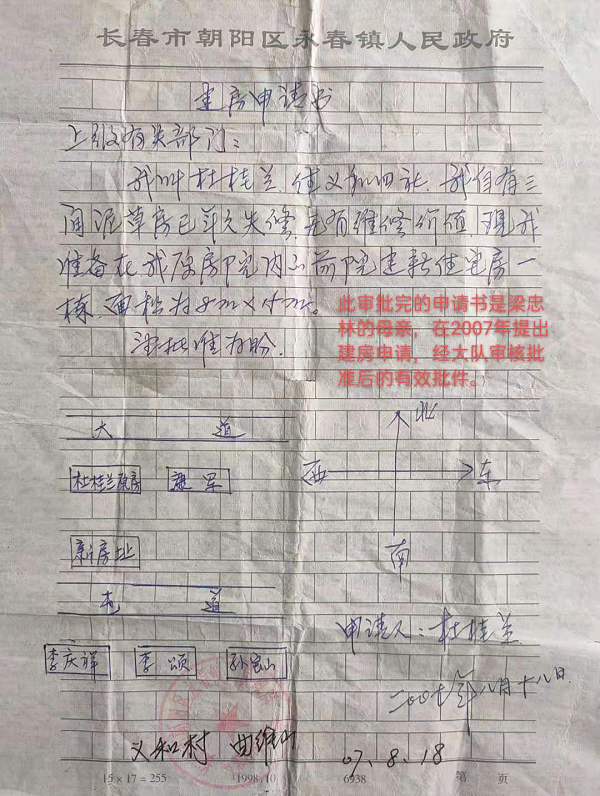 长春市朝阳区永春镇人民政府
建房申请书
上级有关部门:
我叫杜桂兰,住义和四社,我自有三
间泥草房已年久失修,无有维修价值,现我
准备在我原房院内以前院建新住宅房一
栋,面积为
批准为盼.
此审批完的申请书是梁忠
林的母亲,在2007年提出
建房申请,经大队审核批
准后的有效批件。
大 道
北
杜桂兰原房
军
西
东
新房址
南
道
申请人:杜桂兰
李庆祥
李颂
孙宝山
二00七年八月十八日.
义和村 曲维山 07.8.18
15×17=255 1998.10 6938 第 页